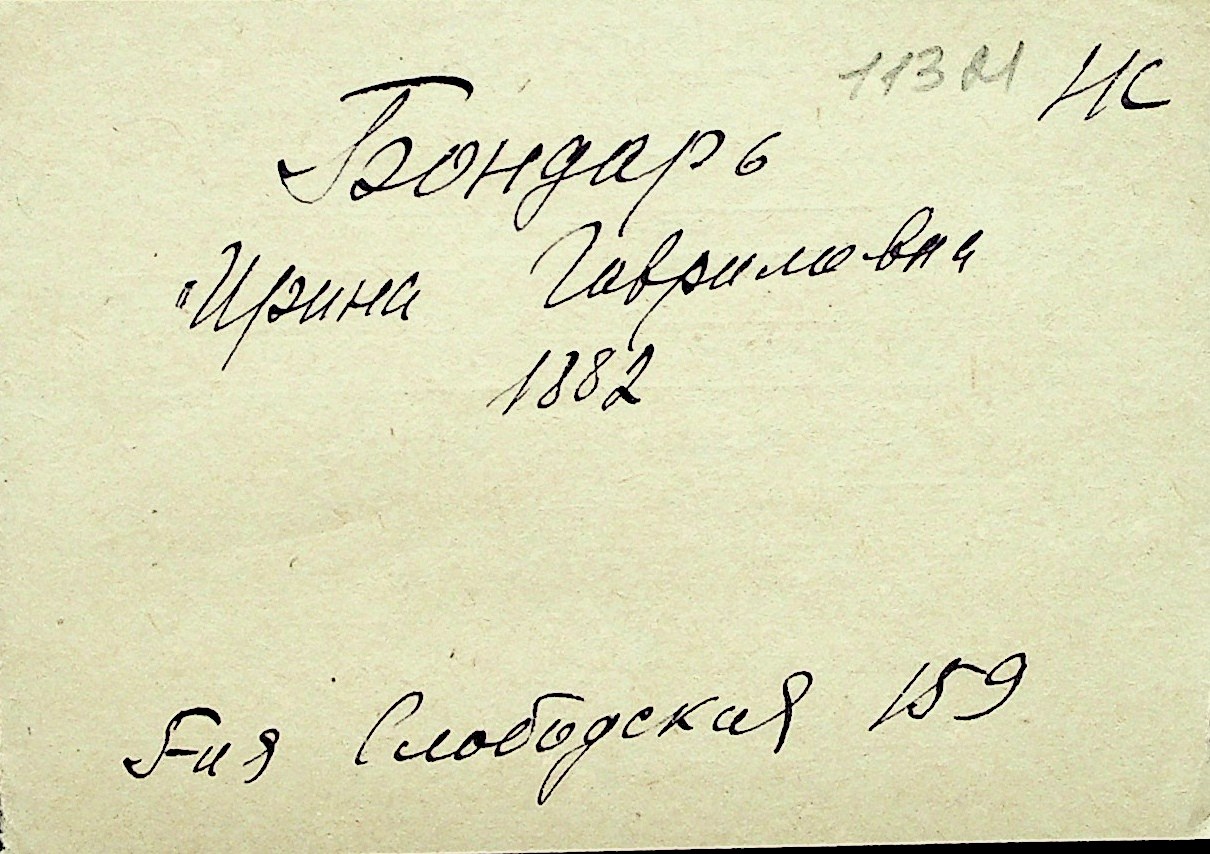 НС
Бондарь
Ирина Гавриловна
1882
5-ия Слободская 159